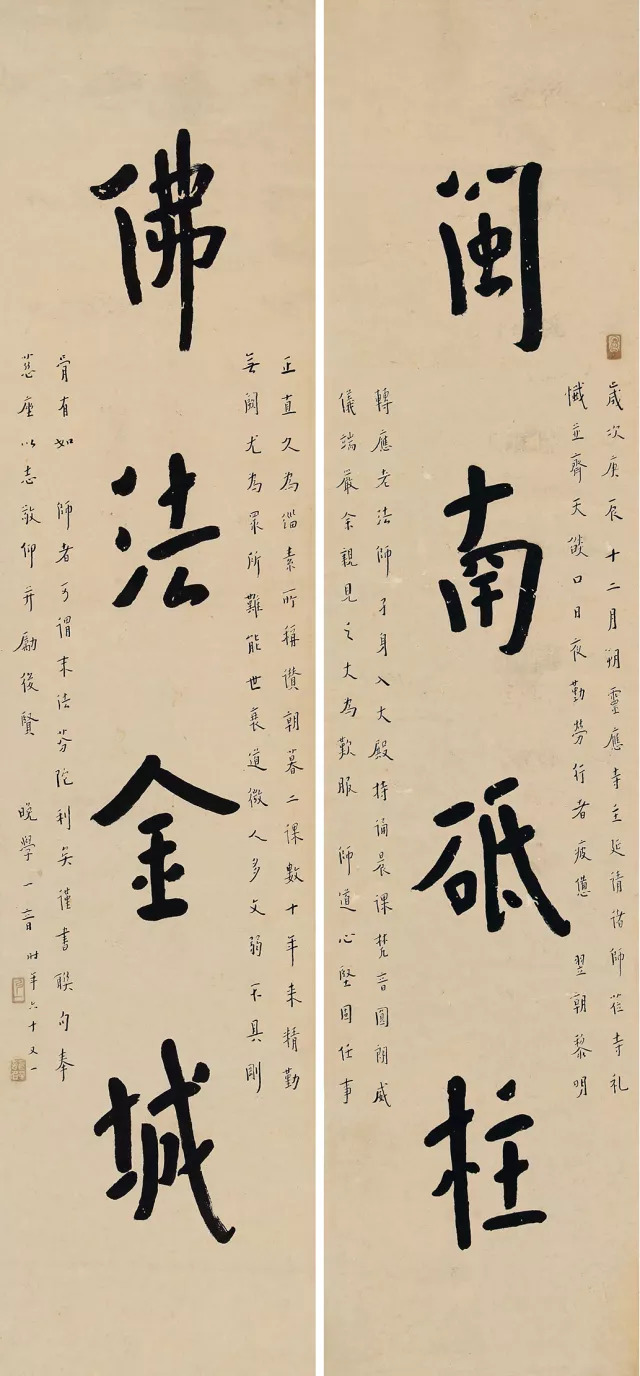 閩南砥柱
歲次庚辰十二月朔靈應寺主延請諸師莅寺礼
懺並齋天燄口日夜勤勞行者疲憊 翌朝黎明
轉應老法師孑身入大殿持誦晨課梵音圓朗威
儀端嚴余親見之大為歎服 師道心堅固任事
佛法金城
正直久為緇素所稱讚朝暮二課數十年來精勤
無闕尤為眾所難能世衰道微人多文弱不具剛
骨有如 師者可謂末法芬陀利矣謹書聯句奉
慈座以志敬仰并勵後賢 晚學一音時年六十又一